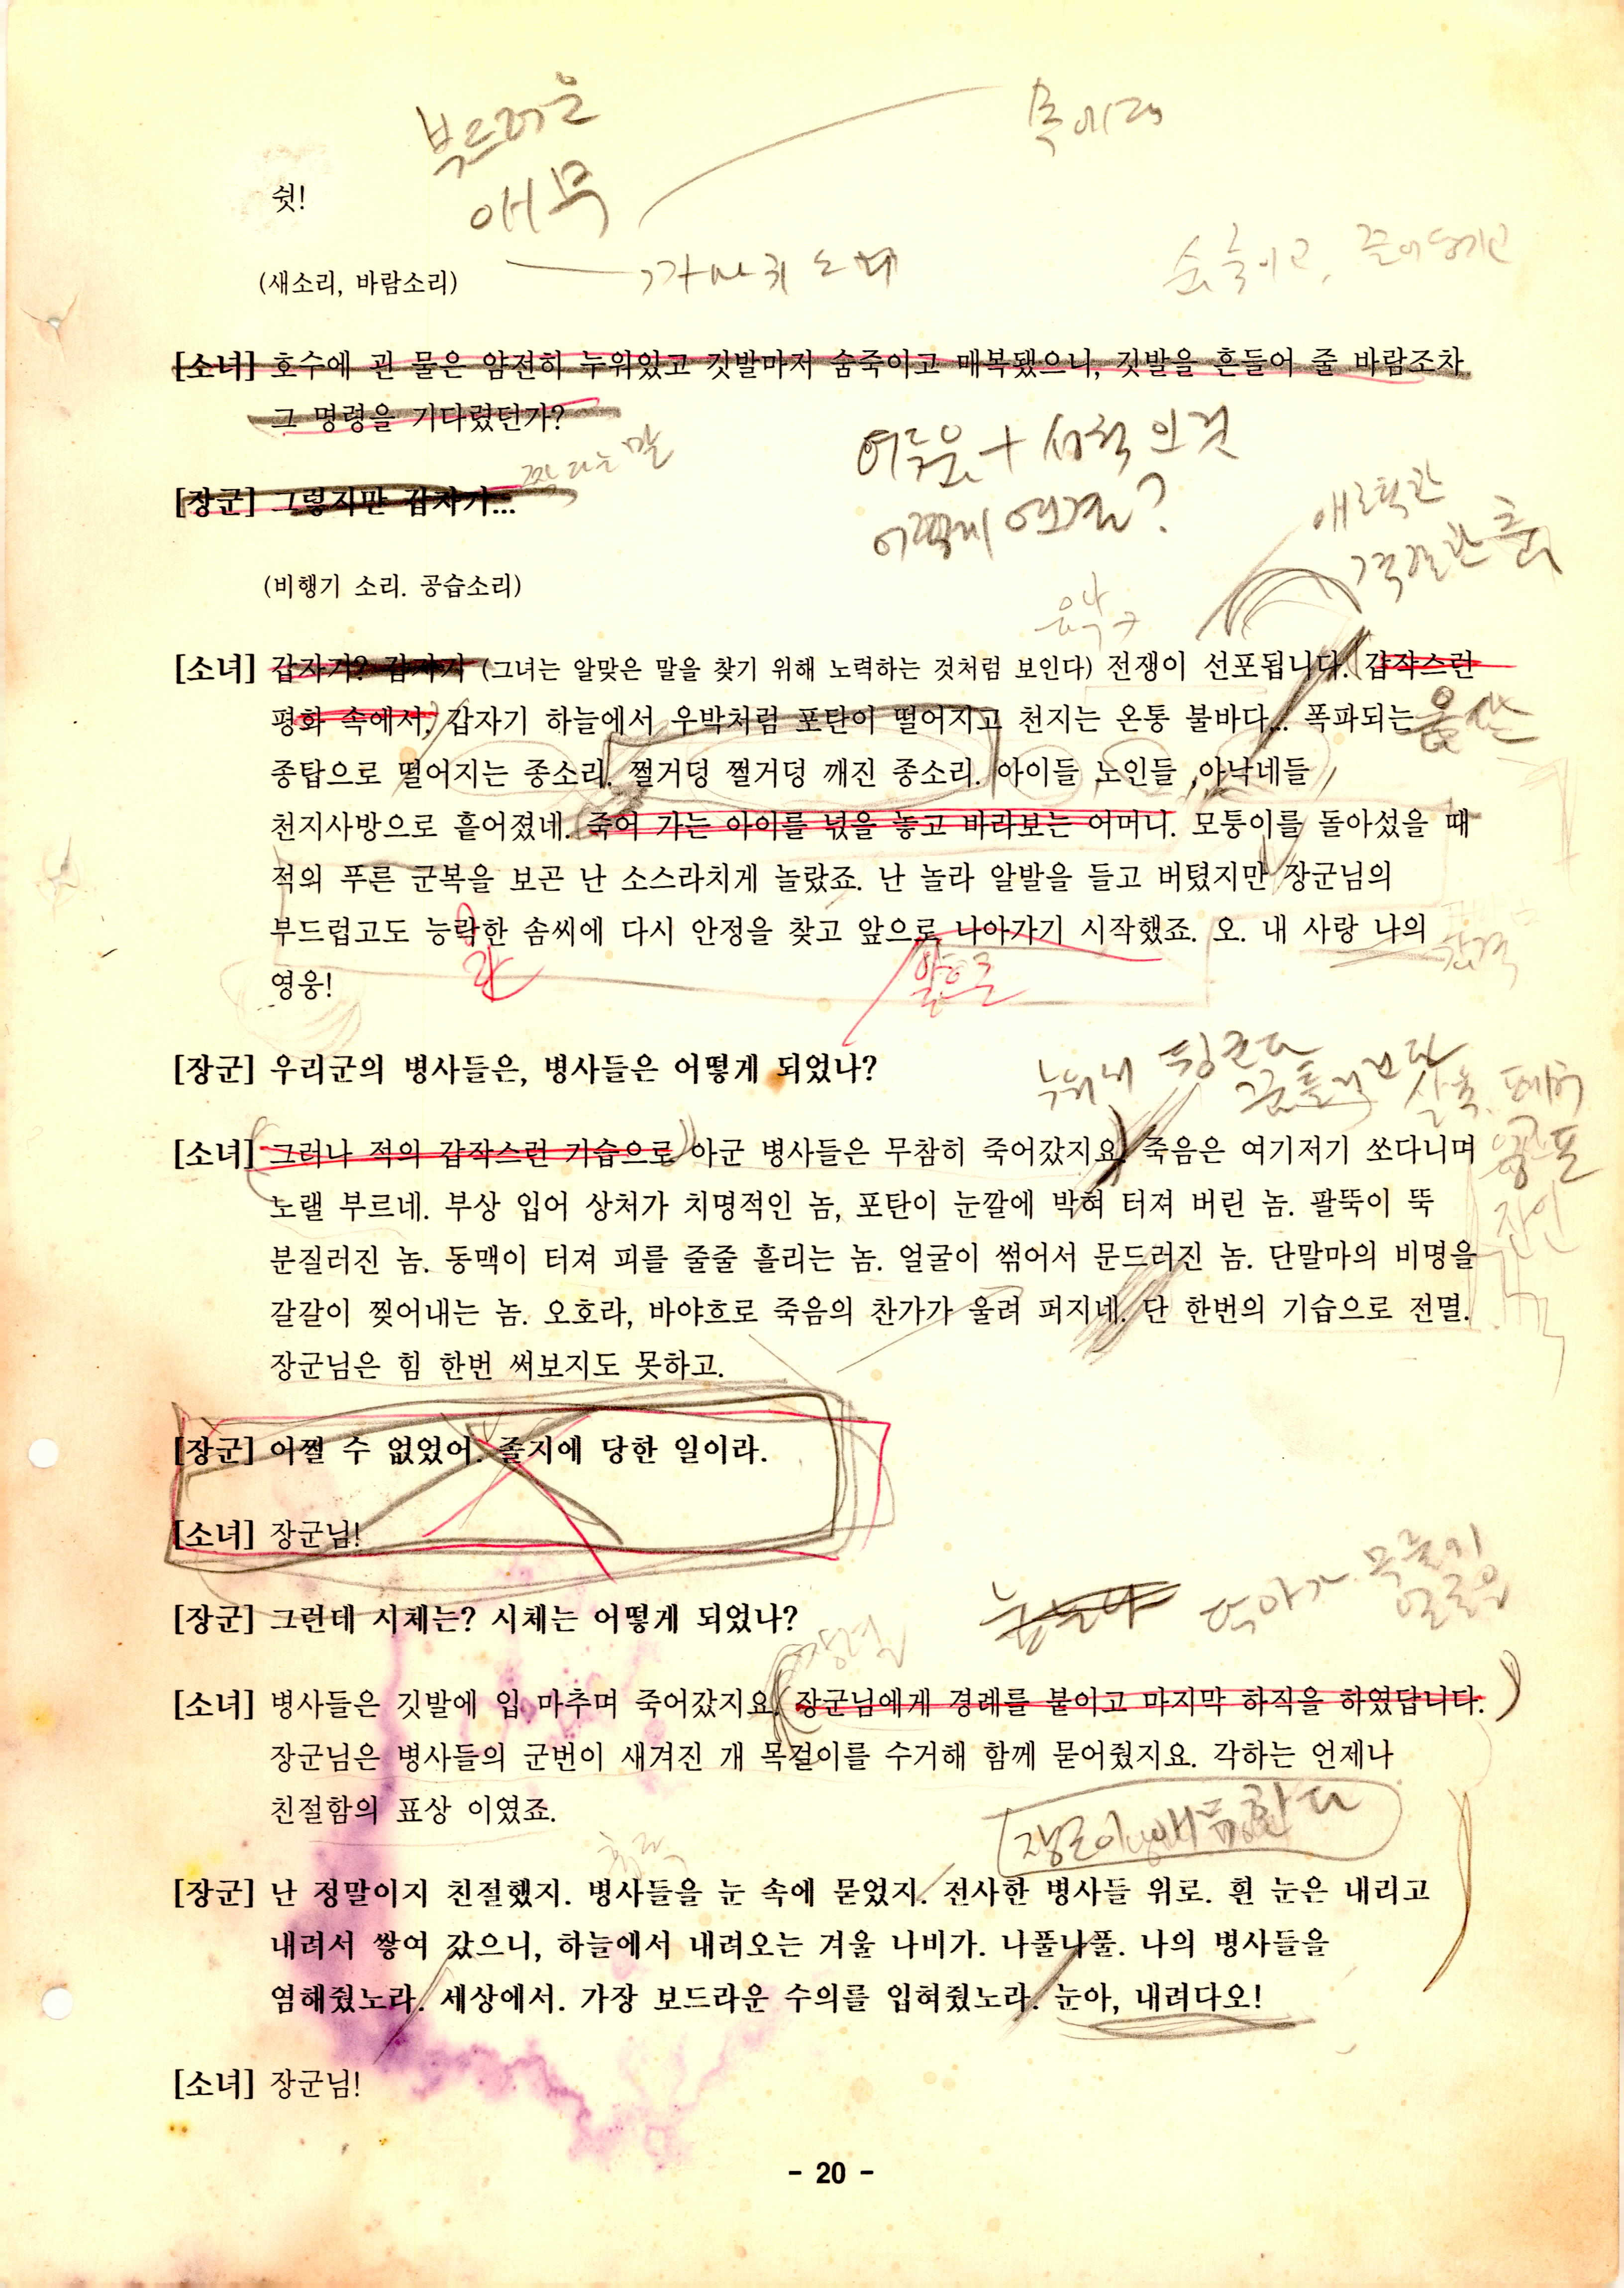 부드러운
애무
쉿!
(새소리, 바람소리)
숨 죽이고, 끌어당기고
[소녀] 호수에 괸 물은 얌전히 누워있고 깃발마저 숨죽이고 매복됐으니, 깃발을 흔들어 줄 바람조차
그 명령을 기다렸던가?
어두운 +
어떻게 연결?
[장군] 그렇지만 갑자기...
(비행기 소리. 공습소리)
음악
[소녀] 갑자기? 갑자기 (그녀는 알맞은 말을 찾기 위해 노력하는 것처럼 보인다) 전쟁이 선포됩니다. 갑작스런
평화 속에서. 갑자기 하늘에서 우박처럼 포탄이 떨어지고 천지는 온통 불바다... 폭파되는
종탑으로 떨어지는 종소리. 쩔거덩 쩔거덩 깨진 종소리. 아이들 ,노인들 ,아낙네들
천지사방으로 흩어졌네. 죽어 가는 아이를 넋을 놓고 바라보는 어머니. 모퉁이를 돌아섰을 때
적의 푸른 군복을 보곤 난 소스라치게 놀랐죠. 난 놀라 앞발을 들고 버텼지만 장군님의
부드럽고도 능락한 솜씨에 다시 안정을 찾고 앞으로 나아가기 시작했죠. 오. 내 사랑 나의
영웅!
앞으로
[장군] 우리군의 병사들은, 병사들은 어떻게 되었나?
[소녀] 그러나 적의 갑작스런 기습으로 아군 병사들은 무참히 죽어갔지요. 죽음은 여기저기 쏘다니며
공포
잔인
노랠 부르네. 부상 입어 상처가 치명적인 놈, 포탄이 눈깔에 박혀 터져 버린 놈. 팔뚝이 뚝
분질러진 놈. 동맥이 터져 피를 줄줄 흘리는 놈. 얼굴이 썪어서 문드러진 놈. 단말마의 비명을
갈갈이 찢어내는 놈. 오호라, 바야흐로 죽음의 찬가가 울려 퍼지네. 단 한번의 기습으로 전멸.
장군님은 힘 한번 써보지도 못하고.
[장군] 어쩔 수 없었어. 졸지에 당한 일이라.
[소녀] 장군님!
[장군] 그런데 시체는? 시체는 어떻게 되었나?
[소녀] 병사들은 깃발에 입 마추며 죽어갔지요. 장군님에게 경례를 붙이고 마지막 하직을 하였답니다.
장군님은 병사들의 군번이 새겨진 개 목걸이를 수거해 함께 묻어줬지요. 각하는 언제나
친절함의 표상 이였죠.
[장군] 난 정말이지 친절했지. 병사들을 눈 속에 묻었지. 전사한 병사들 위로. 흰 눈은 내리고
내려서 쌓여 갔으니, 하늘에서 내려오는 겨울 나비가. 나풀나풀. 나의 병사들을
염해줬노라. 세상에서. 가장 보드라운 수의를 입혀줬노라. 눈아, 내려다오!
[소녀] 장군님!
- 20 -